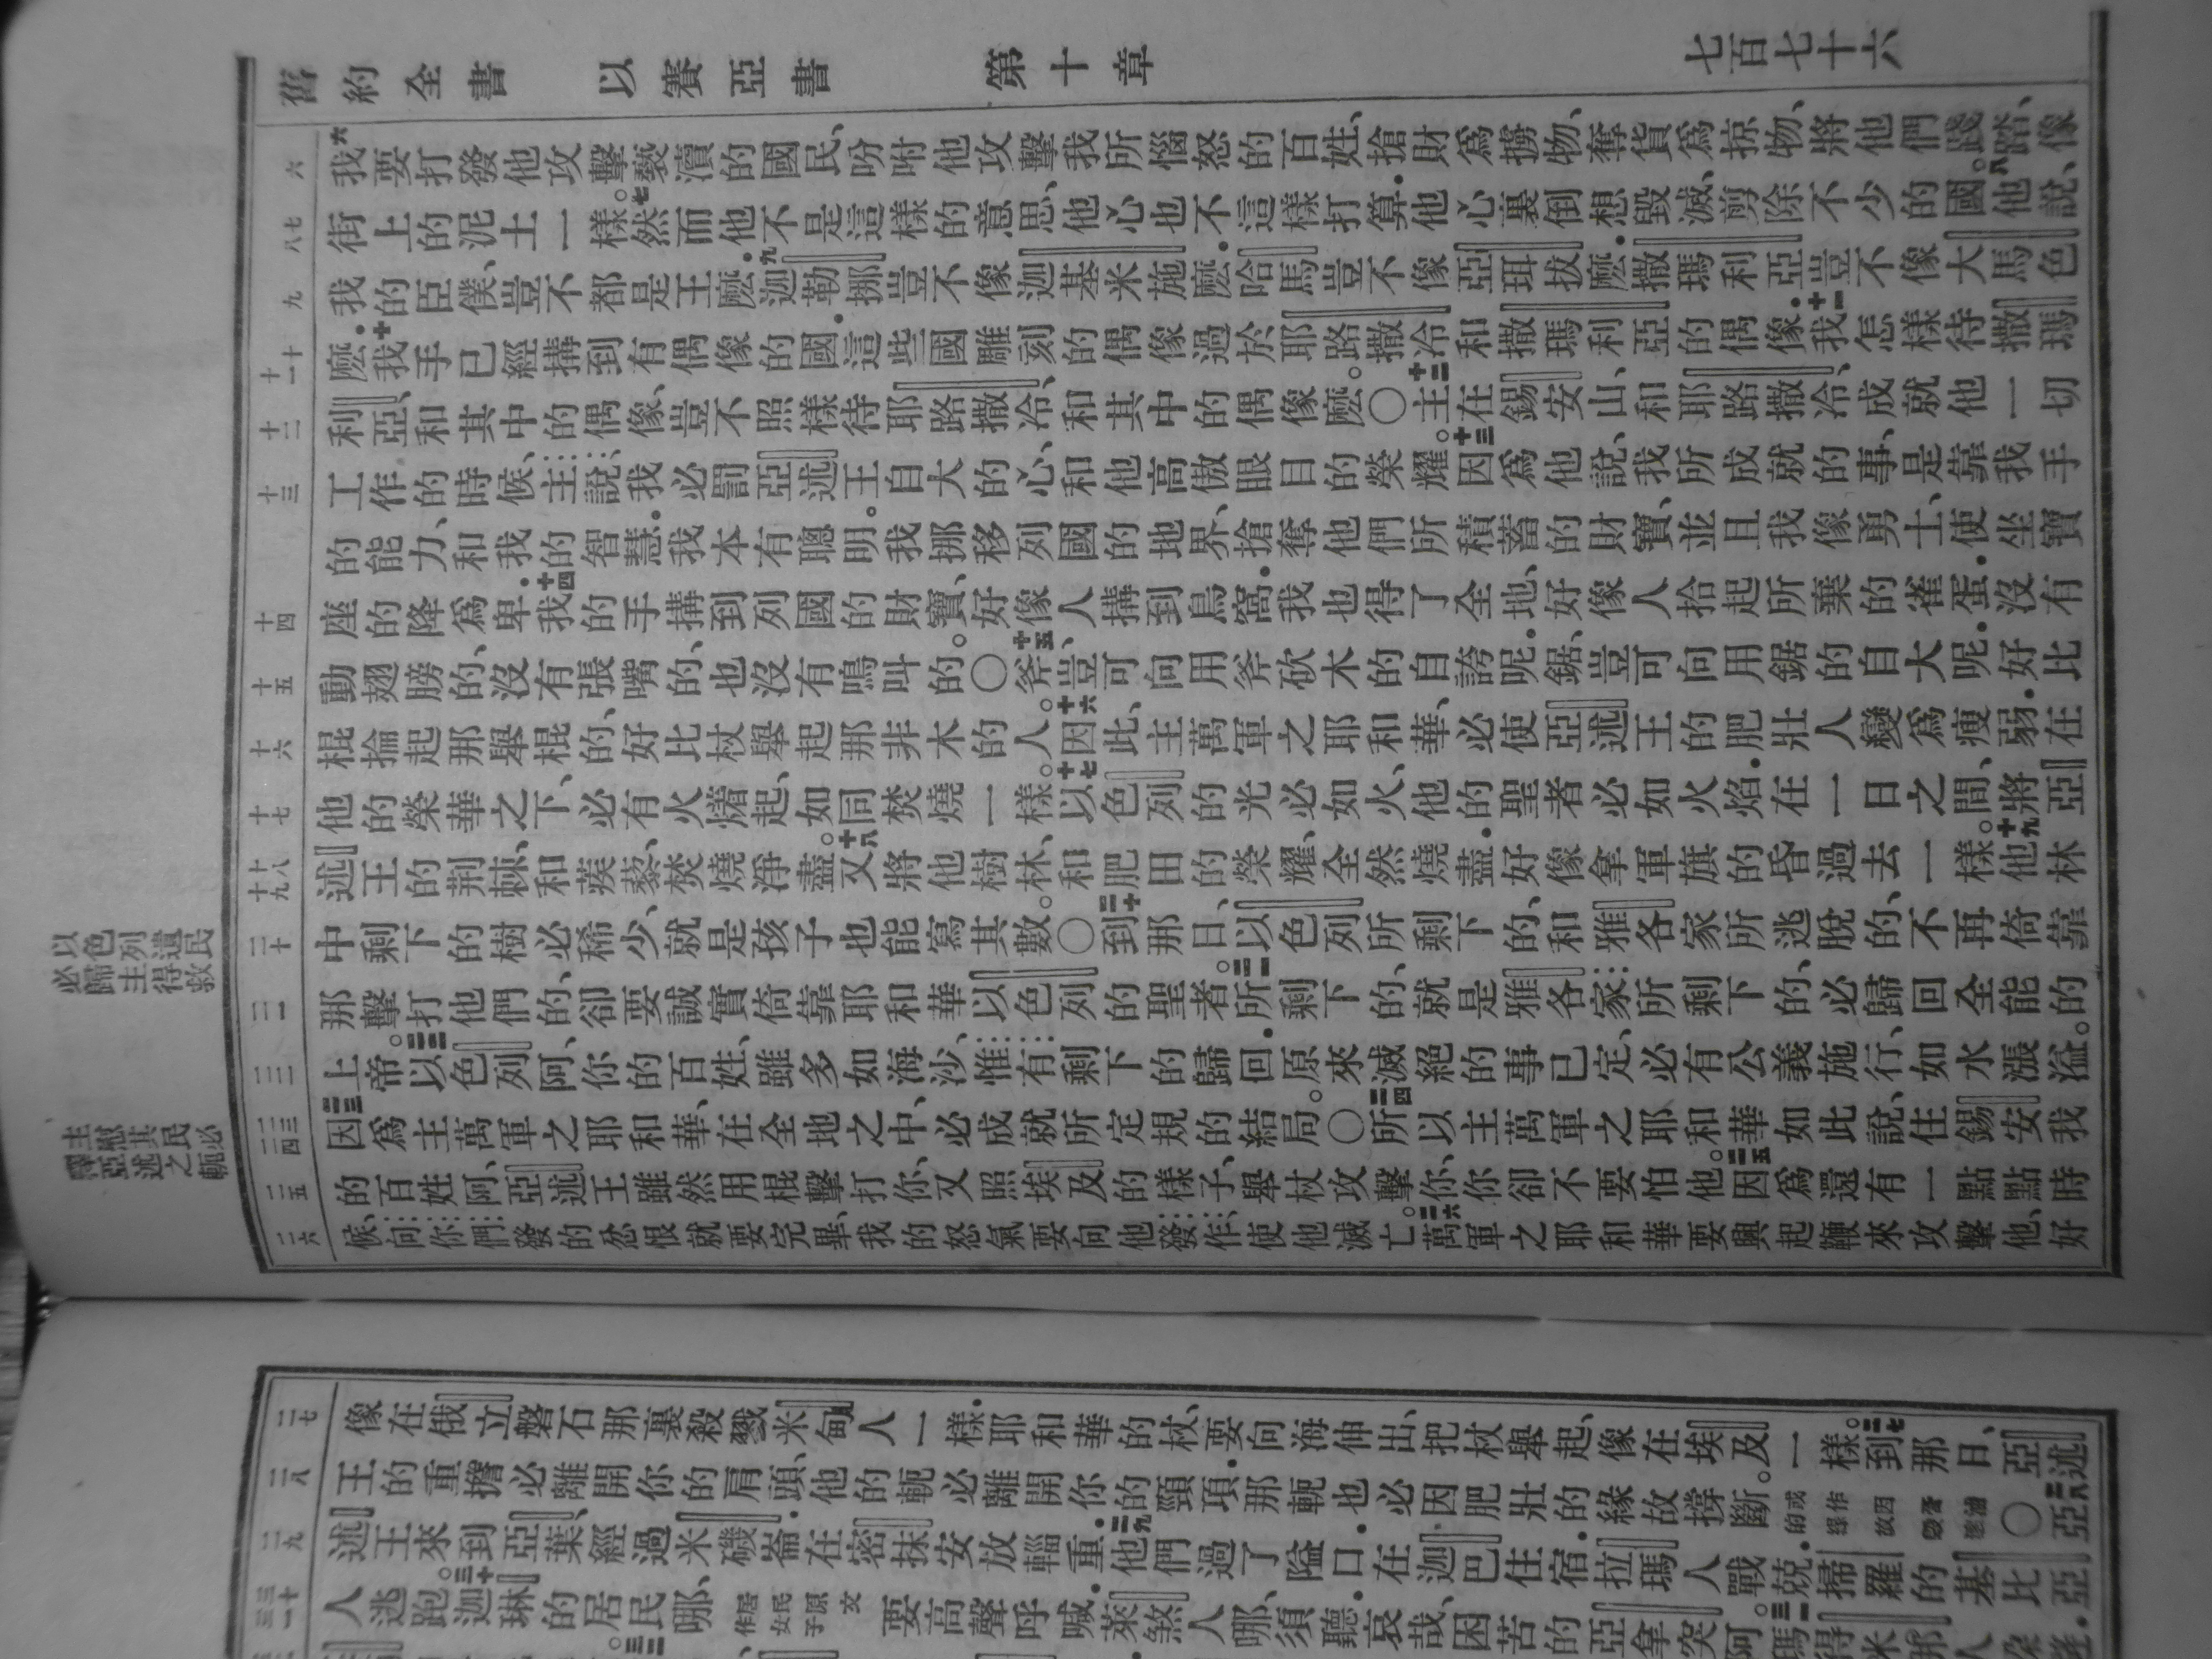 舊約全書 以賽亞書 第十章 七百七十六
六 六我要打發他攻擊褻瀆的國民、吩咐他攻擊我所惱怒的百姓、搶財爲擄物、奪貨爲掠物、將他們踐踏、像
七八 街上的泥土一樣。七然而他不是這樣的意思、他心也不這樣打算．他心裏倒想毀滅、剪除不少的國。八他說、
九 我的臣僕、豈不都是王麼．九迦勒挪豈不像迦基米施麼．哈馬豈不像亞珥拔麼．撒瑪利亞豈不像大馬色
十十一 麼．十我手已經搆到有偶像的國．這些國雕刻的偶像、過於耶路撒冷和撒瑪利亞的偶像．十一我怎樣待撒瑪
十二 利亞、和其中的偶像、豈不照樣待耶路撒冷、和其中的偶像麼。〇十二主在錫安山、和耶路撒冷、成就他一切
十三 工作的時候、主說、我必罰亞述王自大的心、和他高傲眼目的榮耀。十三因爲他說、我所成就的事、是靠我手
的能力、和我的智慧．我本有聰明。我挪移列國的地界、搶奪他們所積蓄的財寶、並且我像勇士、使坐寶
十四 座的降爲卑．十四我的手搆到列國的財寶、好像人搆到鳥窩．我也得了全地、好像人拾起所棄的雀蛋．沒有
十五 動翅膀的、沒有張嘴的、也沒有鳴叫的。〇十五斧、豈可向用斧砍木的自誇呢．鋸、豈可向用鋸的自大呢．好比
十六 棍掄起那舉棍的、好比杖舉起那非木的人。十六因此、主萬軍之耶和華、必使亞述王的肥壯人變爲瘦弱．在
十七 他的榮華之下、必有火𤏲起、如同焚燒一樣。十七以色列的光必如火、他的聖者必如火焰．在一日之間、將亞
十八十九 述王的荆棘、和蒺藜、焚燒淨盡。十八又將他樹林、和肥田的榮耀、全然燒盡．好像拿軍旗的昏過去一樣。十九他林
二十 中剩下的樹必稀少、就是孩子也能寫其數。〇二十到那日、以色列所剩下的、和雅各家所逃脫的、不再倚靠
以色列遺民必歸主得救
二一 那擊打他們的、卻要誠實倚靠耶和華以色列的聖者。二一所剩下的、就是雅各家所剩下的、必歸回全能的
二二 上帝。二二以色列阿、你的百姓、雖多如海沙、惟有剩下的歸回．原來滅絕的事已定、必有公義施行、如水漲溢。
二三二四 二三因爲主萬軍之耶和華、在全地之中、必成就所定規的結局。〇二四所以主萬軍之耶和華如此說、住錫安我
主慰其民必釋亞述之軛
二五 的百姓阿、亞述王雖然用棍擊打你、又照埃及的樣子、舉杖攻擊你、你卻不要怕他。二五因爲還有一點點時
二六 候、向你們發的忿恨就要完畢、我的怒氣要向他發作、使他滅亡。二六萬軍之耶和華要興起鞭來攻擊他、好
二七 像在俄立磐石那裏殺戮米甸人一樣．耶和華的杖、要向海伸出、把杖舉起、像在埃及一樣。二七到那日、亞述
二八 王的重擔必離開你的肩頭、他的軛必離開你的頸項．那軛也必因肥壯的緣故撐斷。〇二八亞
二九 述王來到亞葉、經過米磯崙、在密抹安放輜重．二九他們過了隘口．在迦巴住宿．拉瑪人戰兢．掃羅的基比亞
三十三一 人逃跑。三十迦琳的居民哪、要高聲呼喊．萊煞人哪、須聽．哀哉、困苦的亞拿突阿。